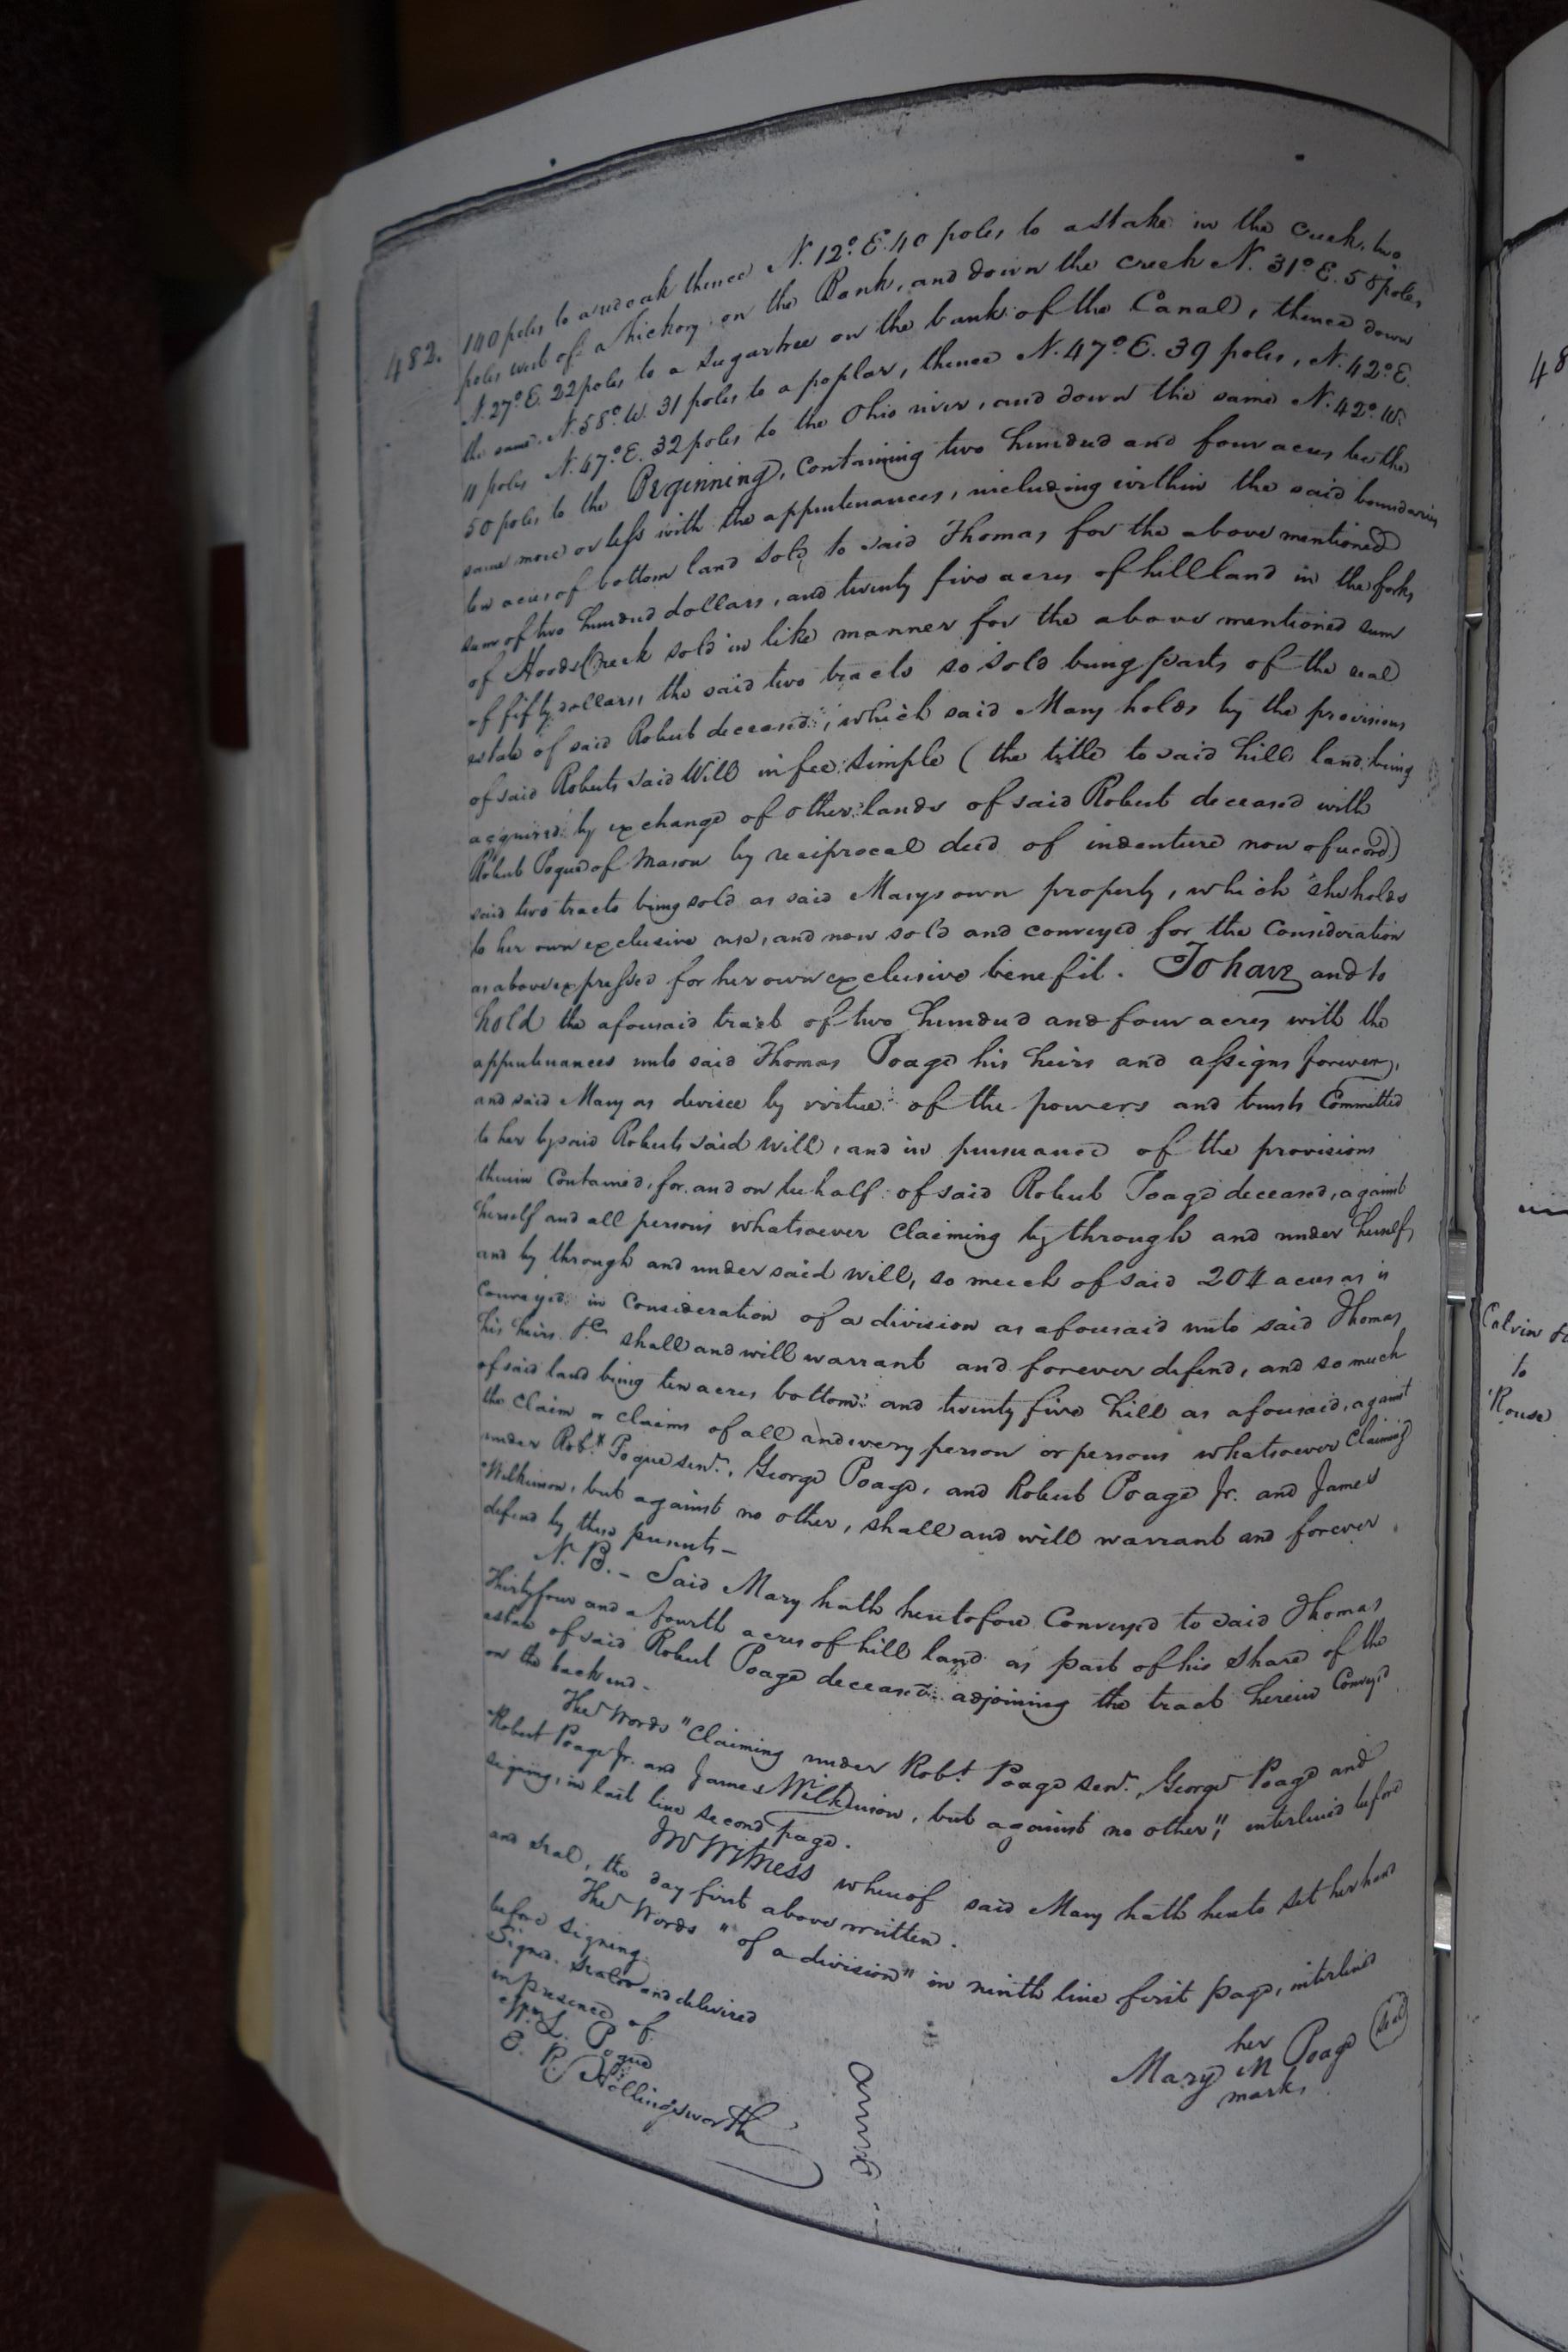 482.
140 poles to a red oak thence N. 12° E. 40 poles to a stake in the creek, two
poles west of a hickory on the Bank, and down the creek N. 31° E. 58 poles
N. 27° E. 22 poles to a Sugartree on the bank of the Canal, thence down
the same N. 58° W. 31 poles to a poplar, thence N. 47° E. 39 poles, N. 42° E.
11 poles N. 47° E. 32 poles to the Ohio river, and down the same N. 42° W.
50 poles to the Beginning, containing two hundred and four acres be the
same more or less with the appurtenances, including within the said boundaries
ten acres of bottom land sold to said Thomas for the above mentioned
sum of two hundred dollars, and twenty five acres of hill land in the forks
of Hoods Creek sold in like manner for the above mentioned sum
of fifty dollars, the said two tracts so sold being parts of the real
estate of said Robert deceased, which said Mary holds by the provisions
of said Roberts said Will in fee simple (the title to said hill land being
acquired by exchange of other lands of said Robert deceased with
Robert Pogue of Mason by reciprocal deed of indenture now of record)
said two tracts being sold as said Marys own property, which she holds
to her own exclusive use, and now sold and conveyed for the Consideration
as above expressed for her own exclusive benefit. To have and to
hold the afousaid tract of two hundred and four acres with the
appurtenances unto said Thomas Poage his heirs and assigns forever,
and said Mary as devisee by virtue of the powers and trusts Committed
to her by said Roberts said will, and in pursuance of the provisions
therein Contained, for and on behalf of said Robert Poage deceased, against
herself and all persons whatsoever Claiming by through and under herself,
and by through and under said will, so much of said 204 acres as is
Conveyed in Consideration of a division as aforesaid unto said Thomas
his heirs &c shall and will warrant and forever defend, and so much
of said land being ten acres bottom and twenty five hill as aforesaid, against
the Claim or claims of all and every person or persons whatsoever Claiming
under Robt. Pogue senr., George Poage, and Robert Poage Jr. and James
Wilkinson, but against no other, shall and will warrant and forever
defend by these presents –
N. B. – Said Mary hath heretofore Conveyed to said Thomas
Thirty four and a fourth acres of hill land as part of his Share of the
estate of said Robert Poage deceased adjoining the tract herein Conveyed
on the back end –
The Words "Claiming under Robt. Poage senr., George Poage and
Robert Poage Jr. and James Wilkinson, but against no other", interlined before
signing, in last line second page.
In Witness whereof said Mary hath hereto set her hand
and seal, the day first above written.
The Words "of a division" in ninth line first page, interlined
before signing.
Signed, Sealed and delivered
in presence of
L. Pogue
E. R. Hollingsworth
her
Mary M Poage (Seal)
mark
48
Calvin
to
Rouse